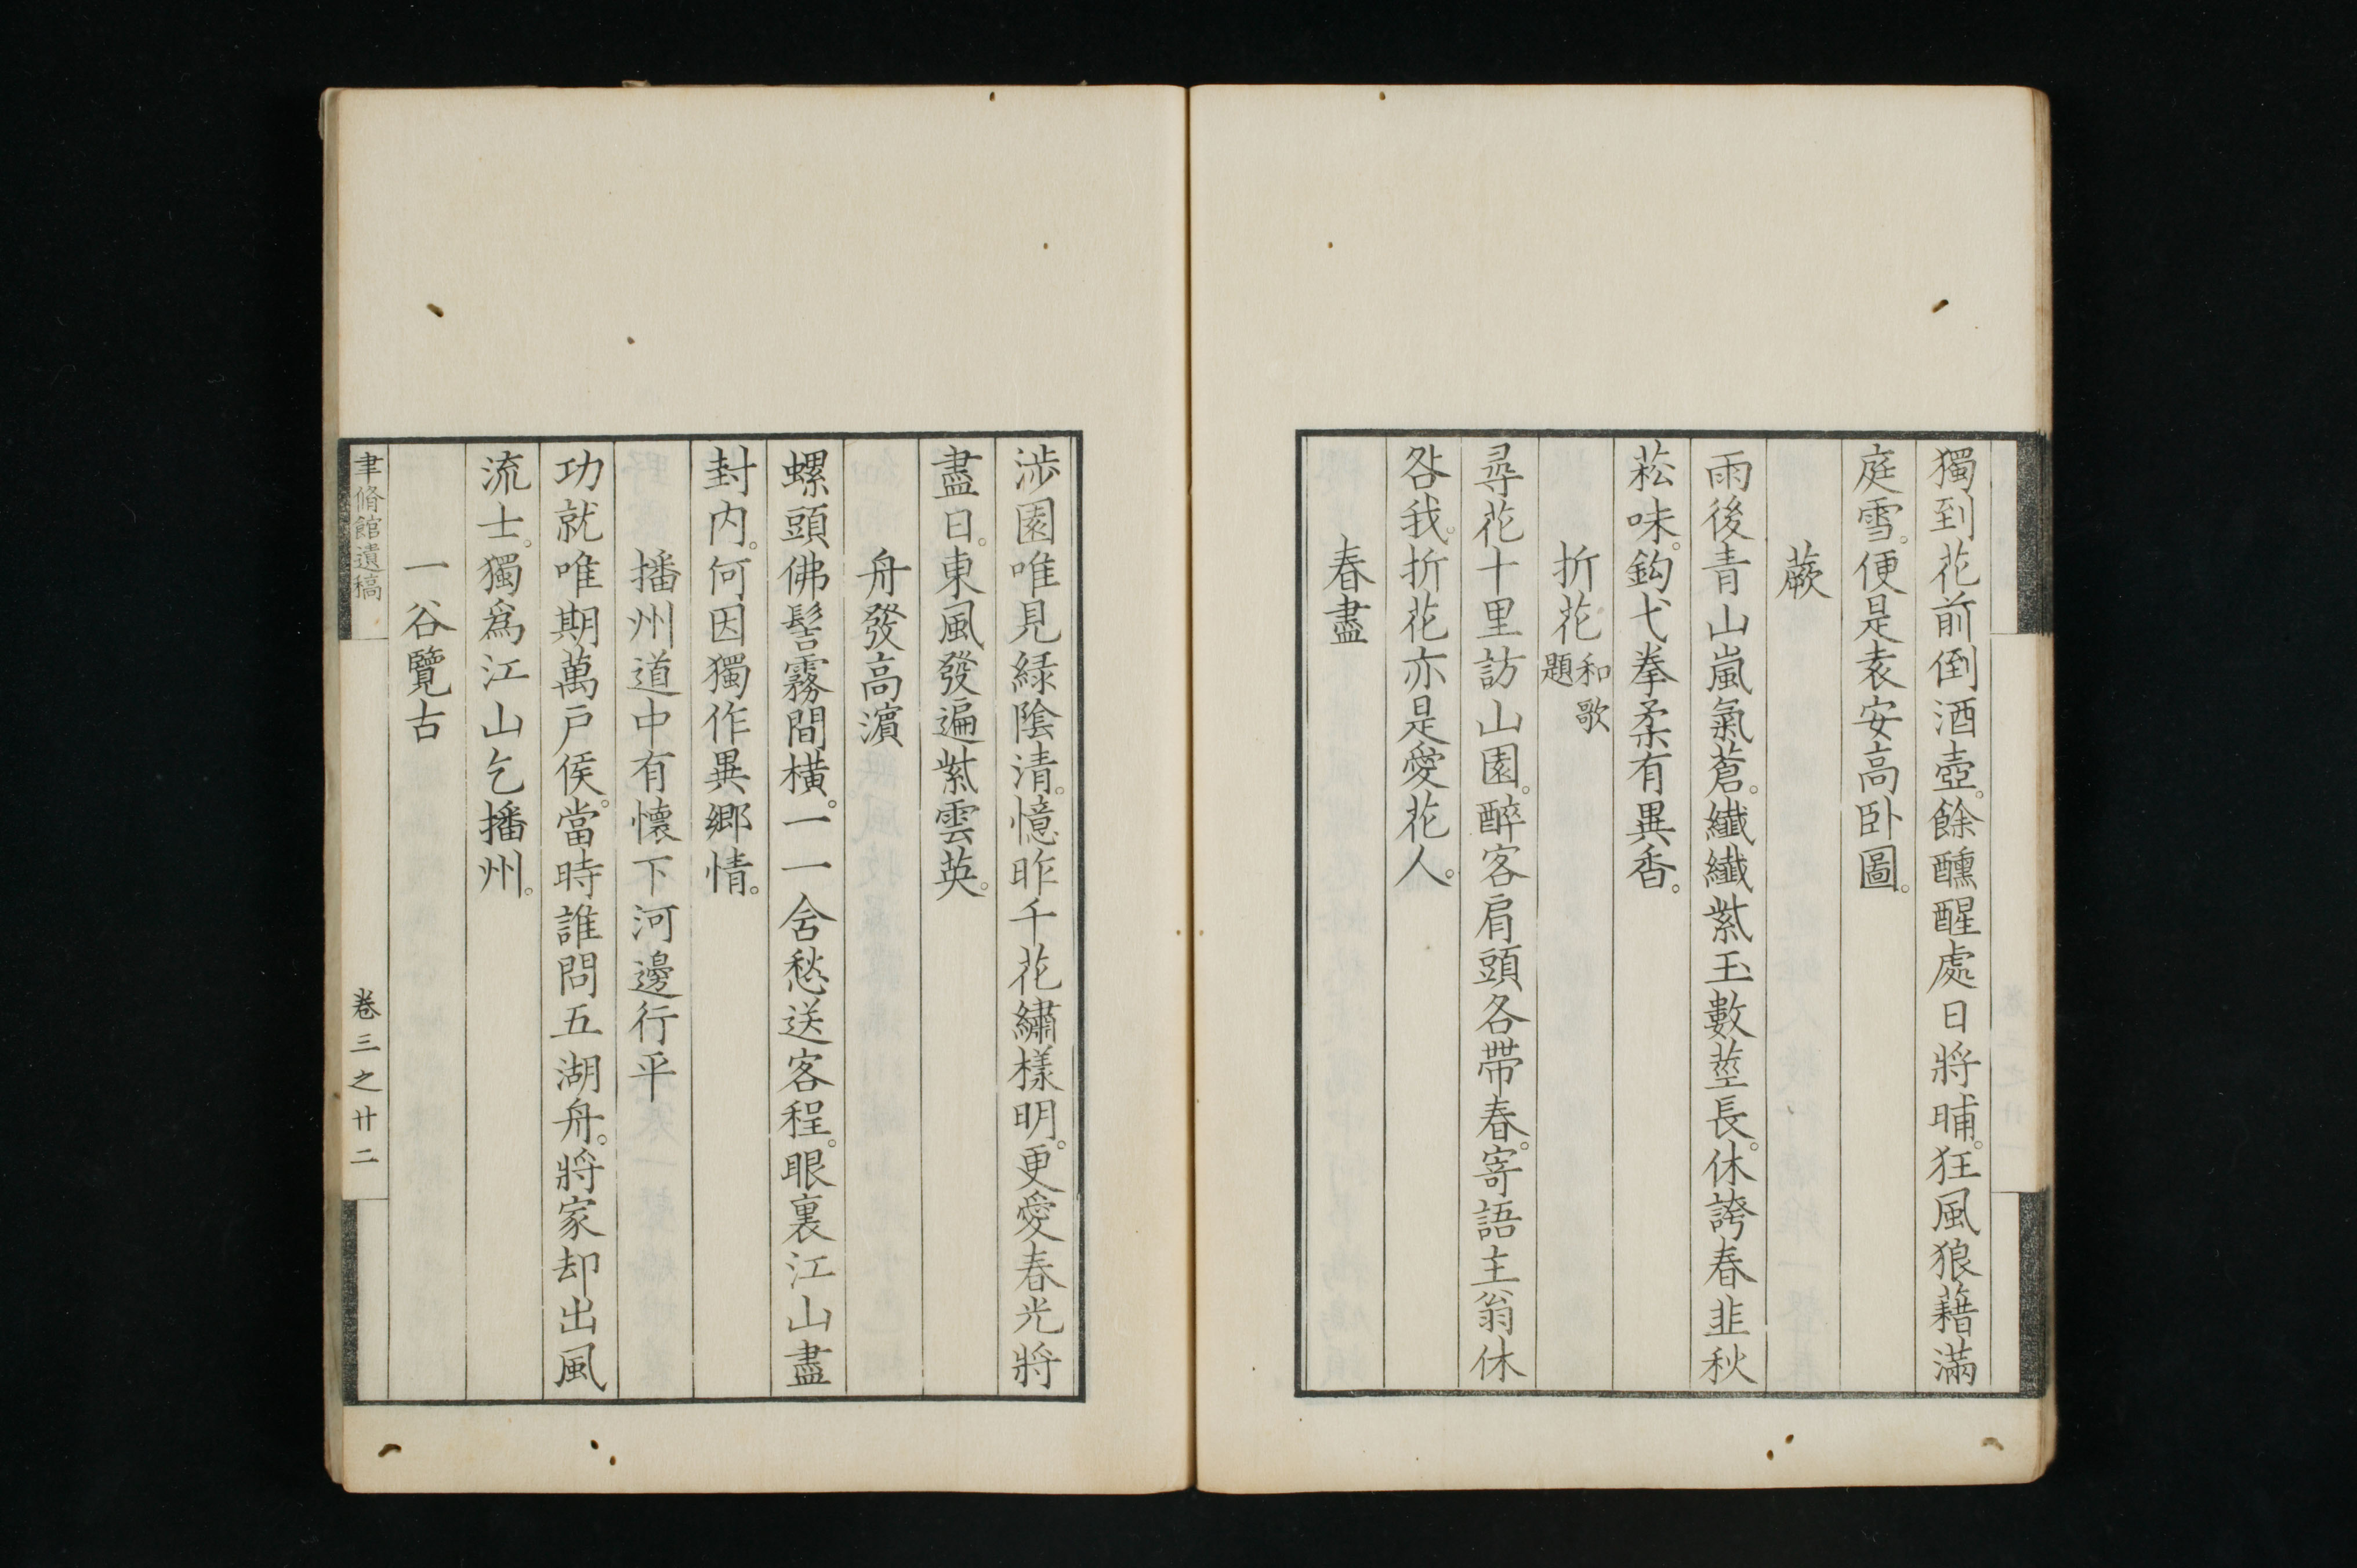 獨到花前倒酒壺。餘醺醒處日將晡。狂風狼藉滿
庭雪。便是袁安高臥圖。
蕨
雨後青山嵐氣蒼。纖纖紫玉數莖長。休誇春韭秋
菘味。鉤弋拳柔有異香。
折花和歌題
尋花十里訪山園。醉客肩頭各帶春。寄語主翁休
咎我。折花亦是愛花人。
春盡
涉園唯見綠陰清。憶昨千花繡樣明。更愛春光將
盡日。東風發遍紫雲英。
舟發高濵
螺頭佛髻霧間橫。一一含愁送客程。眼裏江山盡
封内。何因獨作異鄉情。
播州道中有懷下河邊行平
功就唯期萬戶侯。當時誰問五湖舟。將家却出風
流士。獨爲江山乞播州。
一谷覽古
聿脩館遺稿
卷三之廿二